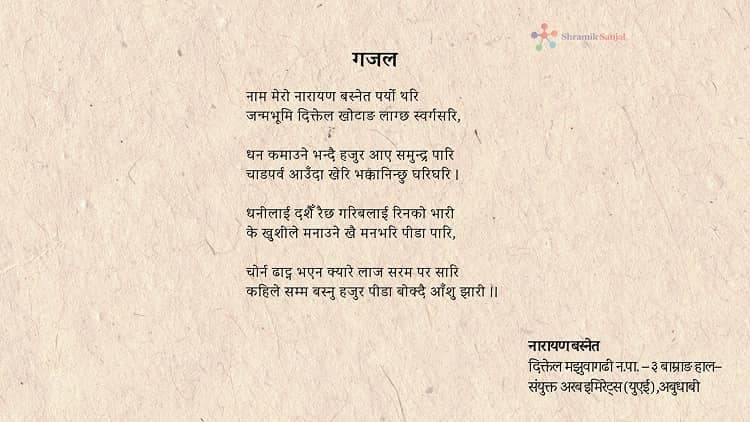 Shramik Sanjal
गजल
नाम मेरो नारायण बस्नेत पर्यो थरि
जन्मभूमि दिक्तेल खोटाङ लाग्छ स्वर्गसरि,
धन कमाउने भन्दै हजुर आए समुन्द्र पारि
चाडपर्व आउँदा खेरि भक्कानिन्छु घरिघरि ।
धनीलाई दशैँ रैछ गरिबलाई रिनको भारी
के खुशीले मनाउने खै मनभरि पीडा पारि,
चोर्न ढाट्न भएन क्यारे लाज सरम पर सारि
कहिले सम्म बस्नु हजुर पीडा बोक्दै आँशु झारी ।।
नारायण बस्नेत
दिक्तेल मझुवागढी न.पा. – ३ बाम्राङ हाल–
संयुक्त अरब इमिरेट्स (युएई) ,अबुधाबी